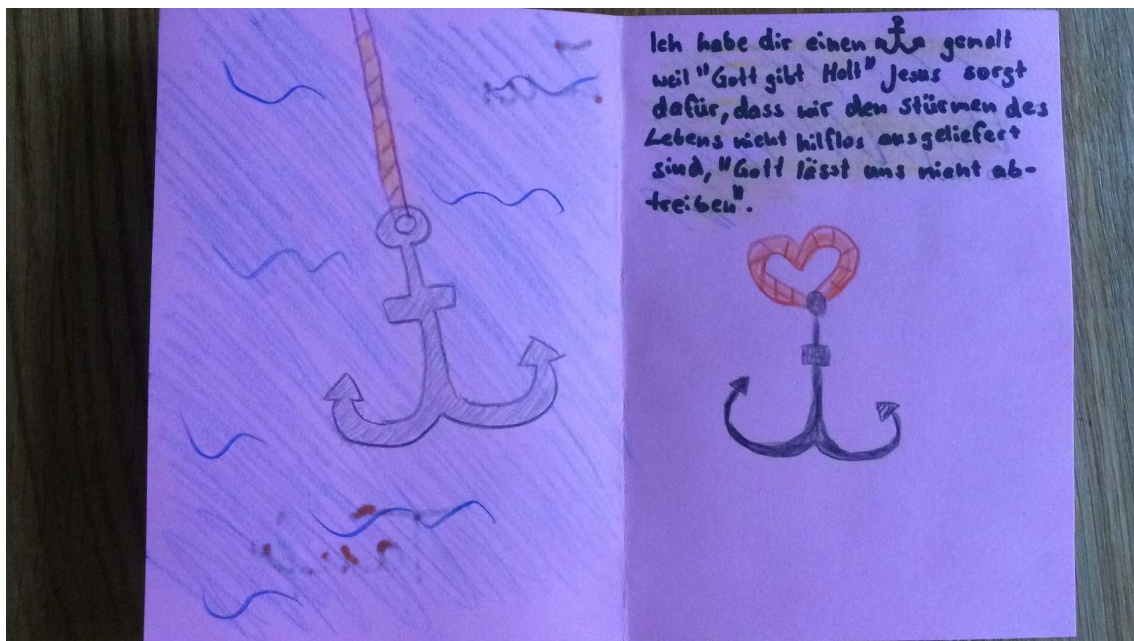 Ich habe dir einen ⚓ gemalt
weil "Gott gibt Halt" Jesus sorgt
dafür, dass wir den Stürmen des
Lebens nicht hilflos ausgeliefert
sind, "Gott lässt uns nicht ab-
treiben".